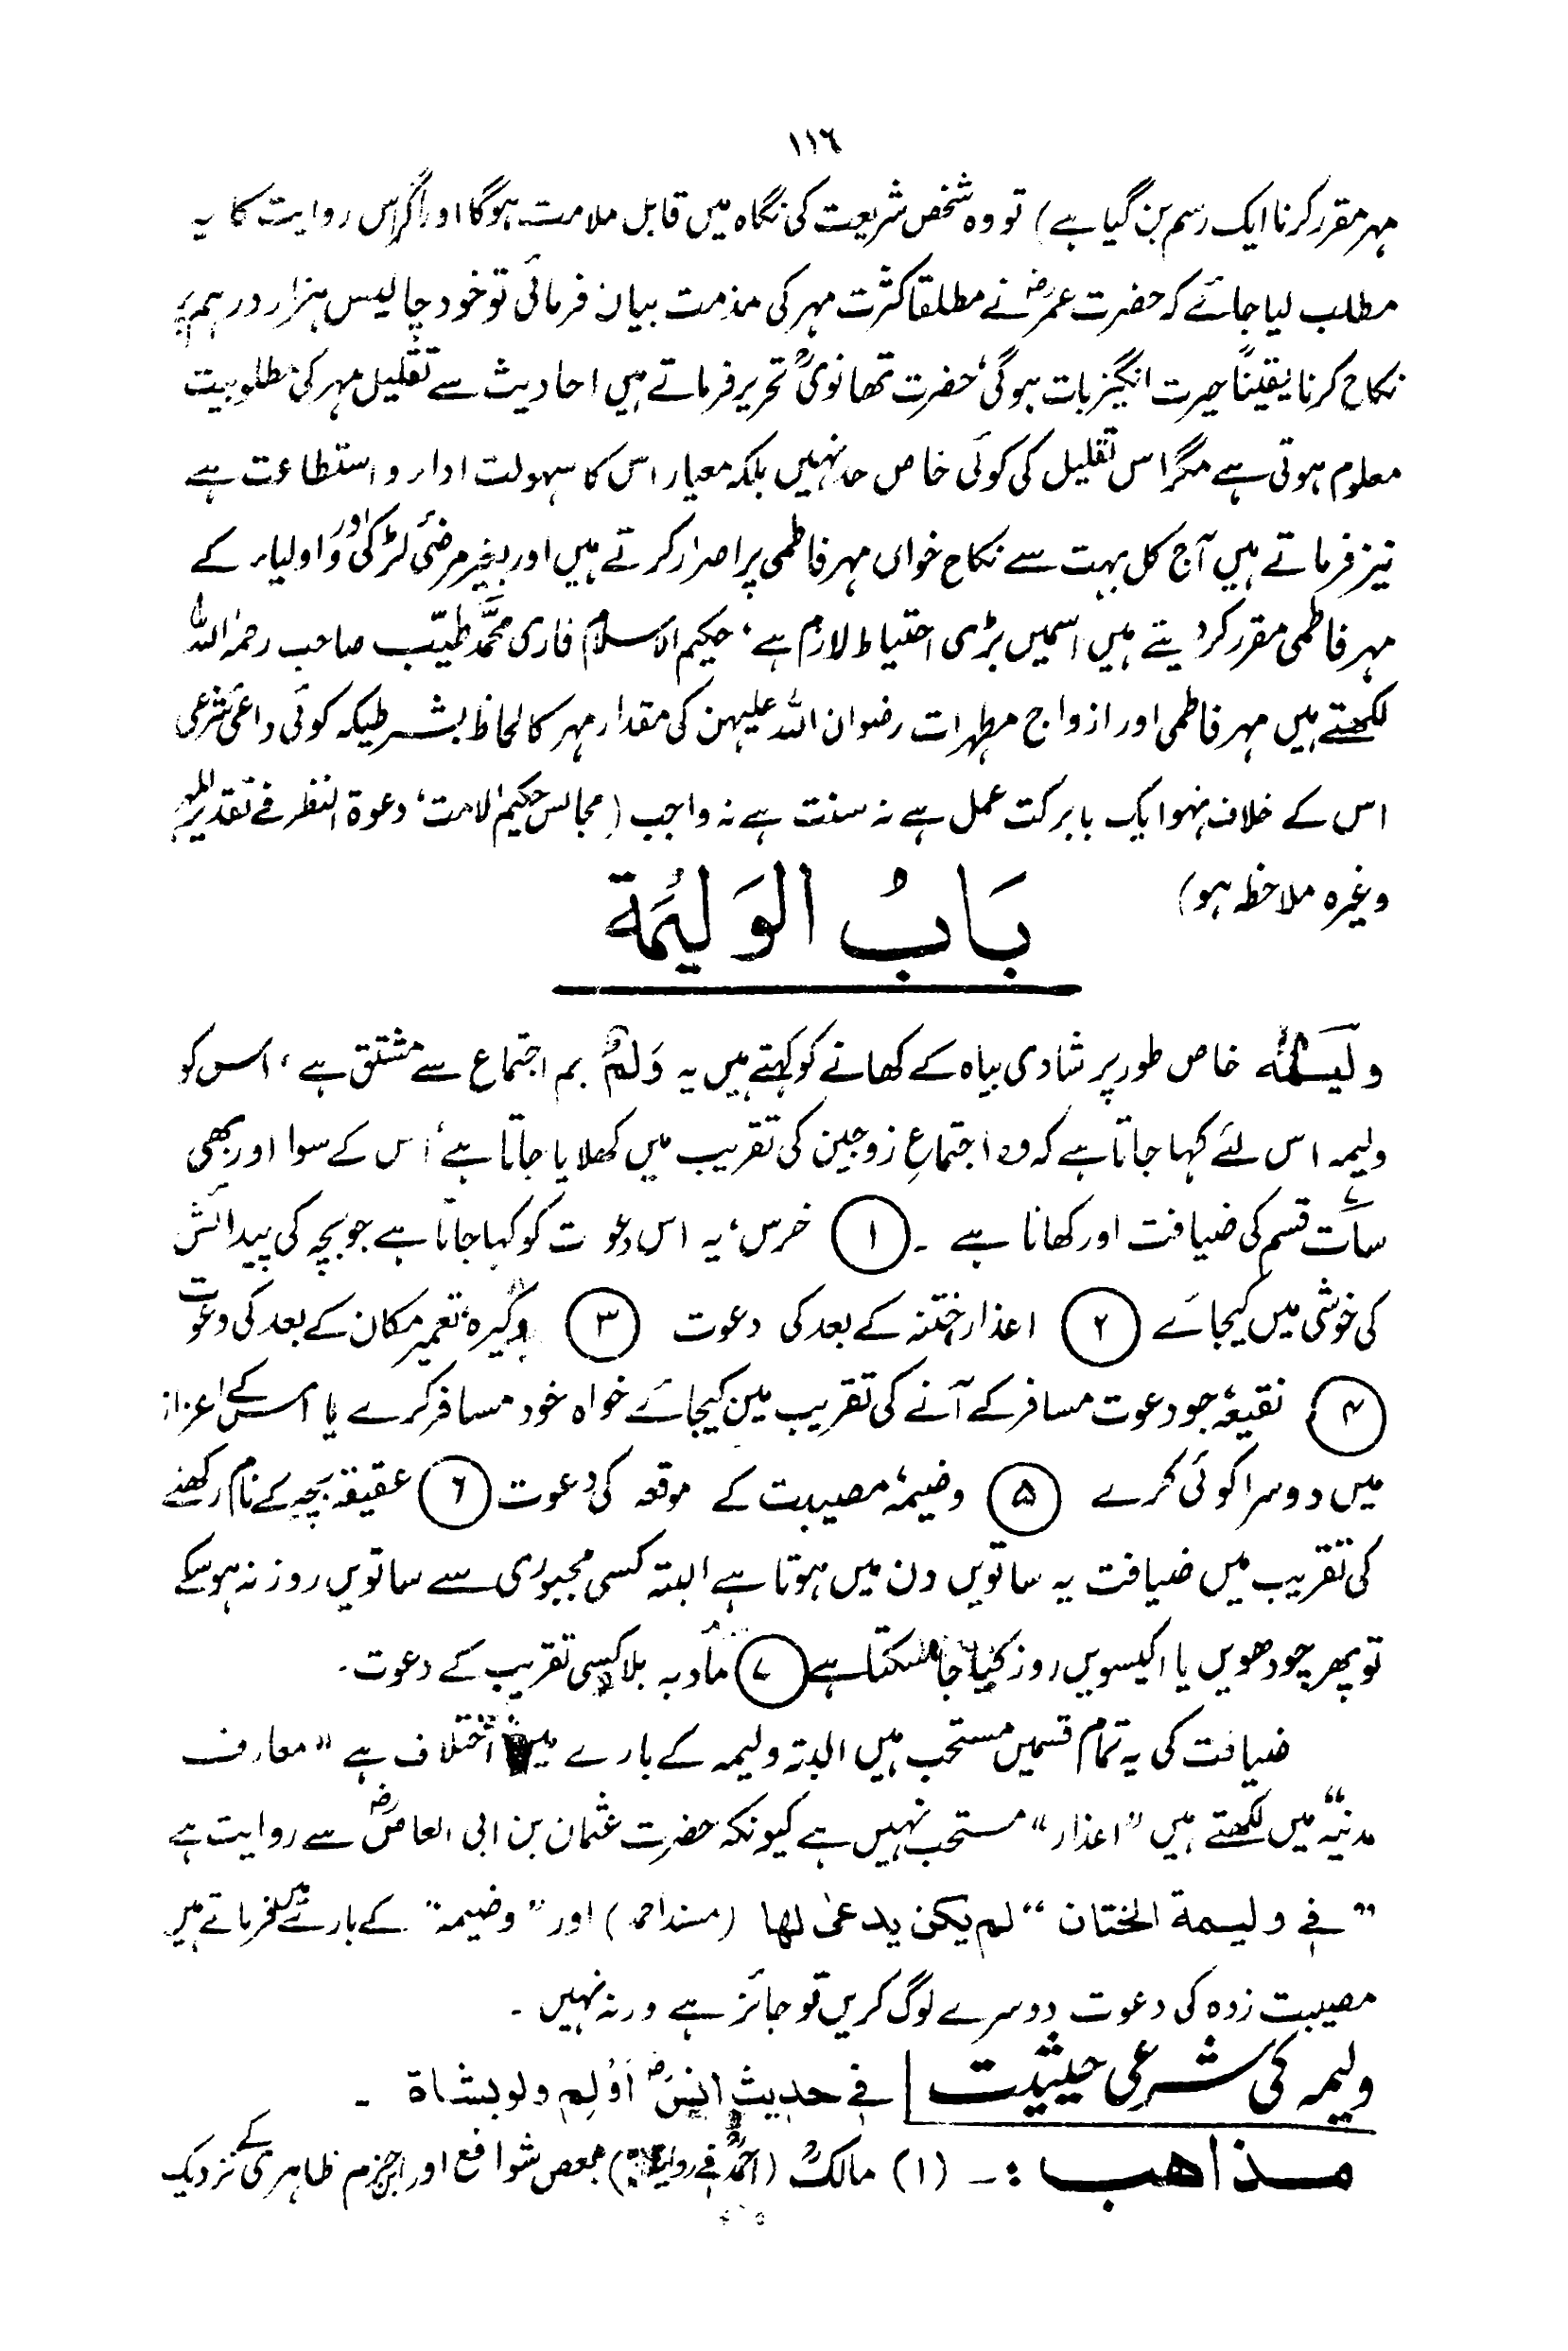 ١١٦
مہر مقرر کرنا ایک رسم بن گیا ہے) تو وہ شخص شریعت کی نگاہ میں قابل ملامت ہوگا اور اگر اس روایت کا یہ
مطلب لیا جائے کہ حضرت عمرؓ نے مطلقا کثرت مہر کی مذمت بیان فرمائی تو خود چالیس ہزار درہم پر
نکاح کرنا یقیناً حیرت انگیز بات ہوگی، حضرت تھانویؒ تحریر فرماتے ہیں احادیث سے تقلیل مہر کی مطلوبیت
معلوم ہوتی ہے مگر اس تقلیل کی کوئی خاص حد نہیں بلکہ معیار اس کا سہولت اداء و استطاعت ہے
نیز فرماتے ہیں آج کل بہت سے نکاح خواں مہر فاطمی پر اصرار کرتے ہیں اور بغیر مرضئ لڑکی اور اولیاء کے
مہر فاطمی مقرر کر دیتے ہیں اسمیں بڑی احتیاط لازم ہے، حکیم الاسلام قاری محمد طیّب صاحب رحمہ اللہ
لکھتے ہیں مہر فاطمی اور ازواج مطہرات رضوان اللہ علیہن کی مقدار مہر کا لحاظ بشرطیکہ کوئی داعئ شرعی
اس کے خلاف نہو ایک بابرکت عمل ہے نہ سنت ہے نہ واجب (مجالس حکیم الامت، دعوة النظر فے تقدیر المہر
وغیرہ ملاحظہ ہو)
بَابُ الوَلِیْمَة
ولیمہ خاص طور پر شادی بیاہ کے کھانے کو کہتے ہیں یہ وَلْمٌ بم اجتماع سے مشتق ہے، اس کو
ولیمہ اس لئے کہا جاتا ہے کہ وہ اجتماعِ زوجین کی تقریب میں کھلایا جاتا ہے، اس کے سوا اور بھی
سات قسم کی ضیافت اور کھانا ہے ۔ ۱ خرس، یہ اس دعوت کو کہا جاتا ہے جو بچہ کی پیدائش
کی خوشی میں کیجائے ۲ اعذار، ختنہ کے بعد کی دعوت ۳ وکیرہ، تعمیر مکان کے بعد کی دعوت
۴ نقیعہ، جو دعوت مسافر کے آنے کی تقریب میں کیجائے خواہ خود مسافر کرے یا اس کے اعزاز
میں دوسرا کوئی کرے ۵ وضیمہ، مصیبت کے موقعہ کی دعوت ۶ عقیقہ، بچہ کے نام رکھنے
کی تقریب میں ضیافت یہ ساتویں دن میں ہوتا ہے البتہ کسی مجبوری سے ساتویں روز نہ ہو سکے
تو پھر چودھویں یا اکیسویں روز کیا جا سکتا ہے ۷ مأدبہ بلا کسی تقریب کے دعوت ۔
ضیافت کی یہ تمام قسمیں مستحب ہیں البتہ ولیمہ کے بارے میں اختلاف ہے "معارف
مدنیہ" میں لکھتے ہیں "اعذار" مستحب نہیں ہے کیونکہ حضرت عثمان بن ابی العاصؓ سے روایت ہے
"فے ولیمة الختان" لم یکن یدعیٰ لها (مسند احمد) اور "وضیمہ" کے بارے میں فرماتے ہیں
مصیبت زدہ کی دعوت دوسرے لوگ کریں تو جائز ہے ورنہ نہیں ۔
ولیمہ کی شرعی حیثیت فے حدیث انسؓ اَوْلِم ولو بشاة ۔
مذاهب :۔ (۱) مالکؒ (احمدؒ فے روایة) بعض شوافع اور ابن حزم ظاہری کے نزدیک